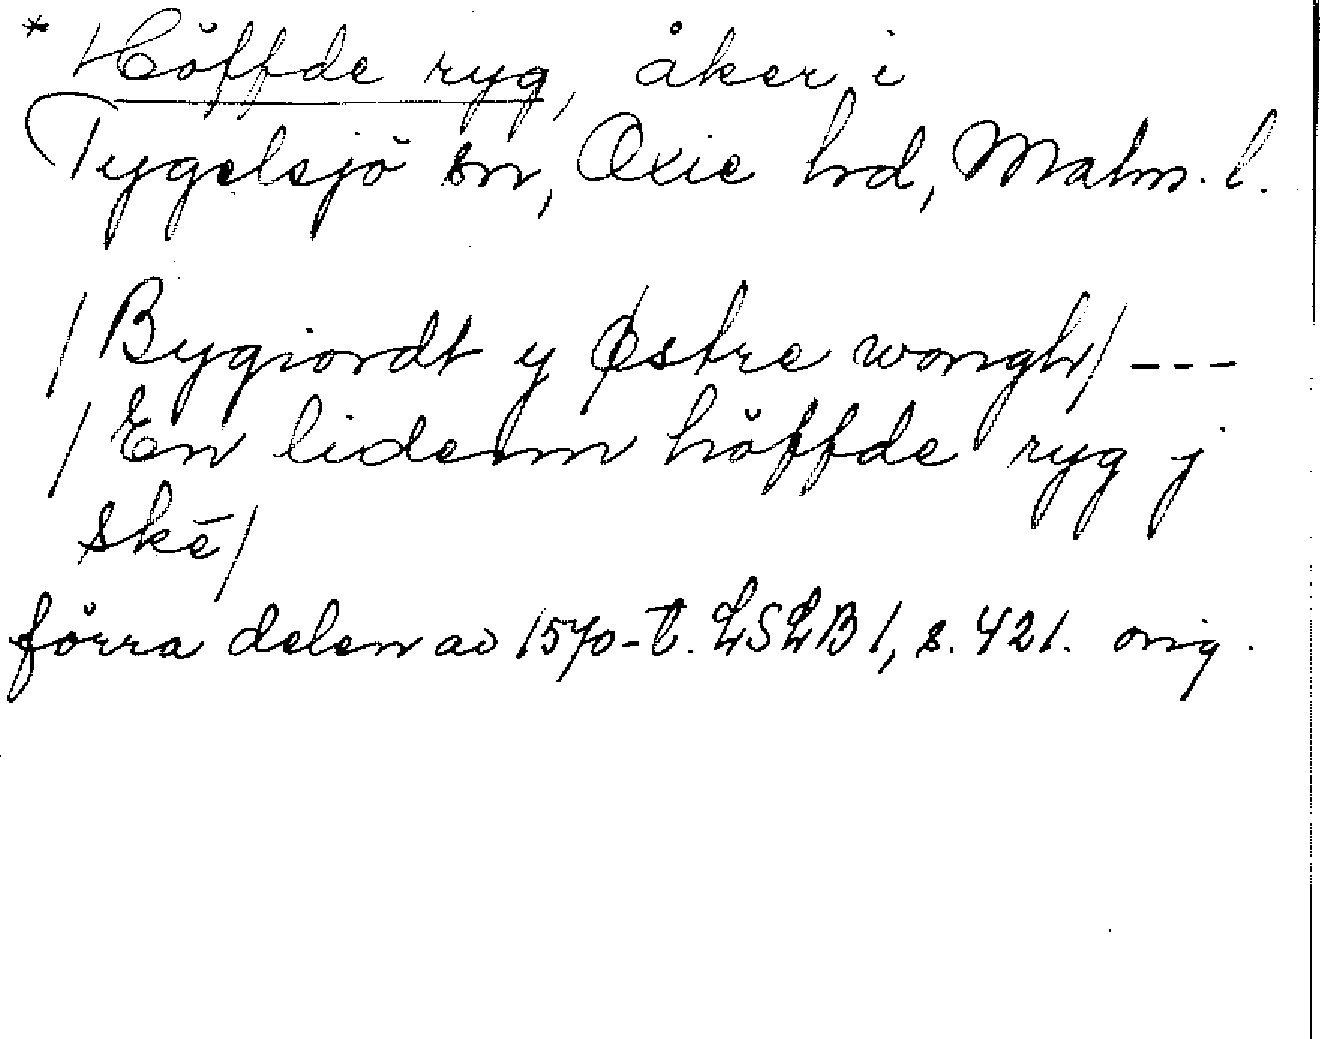 * Höffde ryg, åker i
Tygelsjö sn, Oxie hd, Malm. l.
/Bygiordt y Østre wongh/ ---
/En lidenn höffde ryg j
skē/
förra delen av 1570-t. LSLB 1, s. 421. orig.